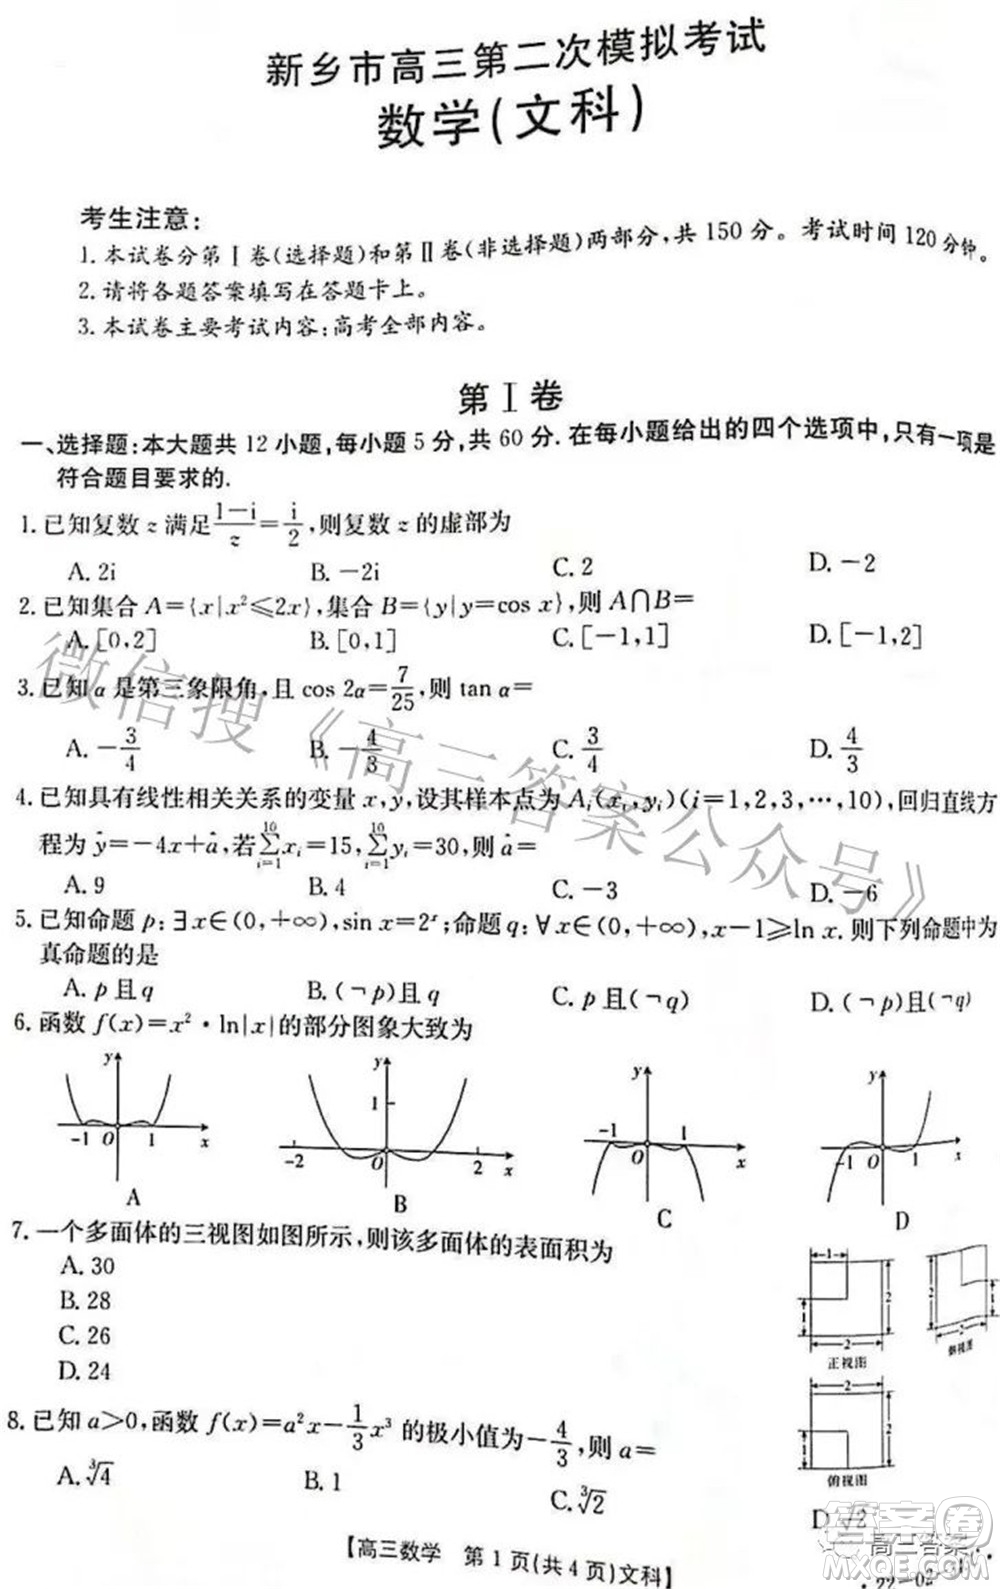 新乡市高三第二次模拟考试
数学(文科)
考生注意:
1.本试卷分第Ⅰ卷(选择题)和第Ⅱ卷(非选择题)两部分,共150分。考试时间120分钟。
2.请将各题答案填写在答题卡上。
3.本试卷主要考试内容:高考全部内容。
第Ⅰ卷
一、选择题:本大题共12小题,每小题5分,共60分.在每小题给出的四个选项中,只有一项是
符合题目要求的.
1.已知复数z满足\frac{1-i}{z}=\frac{i}{2},则复数z的虚部为
A.2i B.-2i C.2 D.-2
2.已知集合A={x|x²≤2x},集合B={y|y=cos x},则A∩B=
A.[0,2] B.[0,1] C.[-1,1] D.[-1,2]
3.已知α是第三象限角,且cos 2α=\frac{7}{25},则tan α=
A.-\frac{3}{4} B.-\frac{4}{3} C.\frac{3}{4} D.\frac{4}{3}
4.已知具有线性相关关系的变量x,y,设其样本点为A_i(x_i,y_i)(i=1,2,3,…,10),回归直线方
程为ŷ=-4x+â,若\sum_{i=1}^{10}x_i=15,\sum_{i=1}^{10}y_i=30,则â=
A.9 B.4 C.-3 D.-6
5.已知命题p:∃x∈(0,+∞),sin x=2^x;命题q:∀x∈(0,+∞),x-1≥ln x.则下列命题中为
真命题的是
A.p且q B.(¬p)且q C.p且(¬q) D.(¬p)且(¬q)
6.函数f(x)=x²·ln|x|的部分图象大致为
y -1 O 1 x
A
y 1 -2 O 2 x
B
y -1 O 1 x
C
y -1 O 1 x
D
7.一个多面体的三视图如图所示,则该多面体的表面积为
A.30
B.28
C.26
D.24
1 1 2 2
正视图
2 1 2
侧视图
2
俯视图
8.已知a>0,函数f(x)=a²x-\frac{1}{3}x³的极小值为-\frac{4}{3},则a=
A.∛4 B.1 C.∛2 D.√2
【高三数学 第1页(共4页)文科】
微信搜《高三答案公众号》
答案圈
高三答案